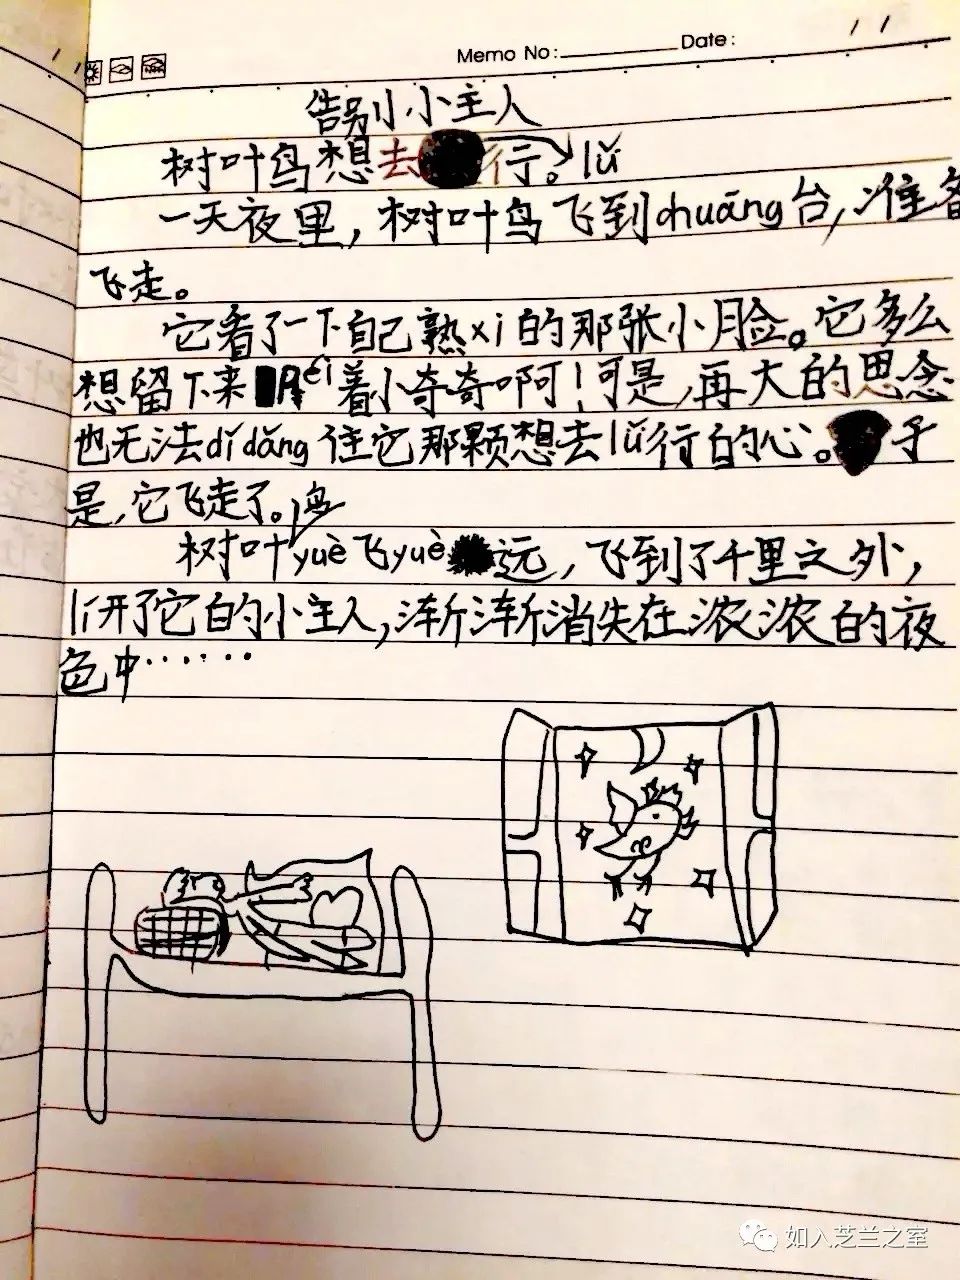 Memo No: Date:
告别小小主人
树叶鸟想去行。lǚ
一天夜里，树叶鸟飞到chuāng台，准备
飞走。
它看了一下自己熟xi的那张小脸。它多么
想留下来péi着小奇奇啊！可是，再大的思念
也无法dǐdǎng住它那颗想去lǚ行的心。于
是，它飞走了。
树叶鸟yuè飞yuè远，飞到了千里之外，
lí开了它的小主人，渐渐消失在浓浓的夜
色中……
如入芝兰之室